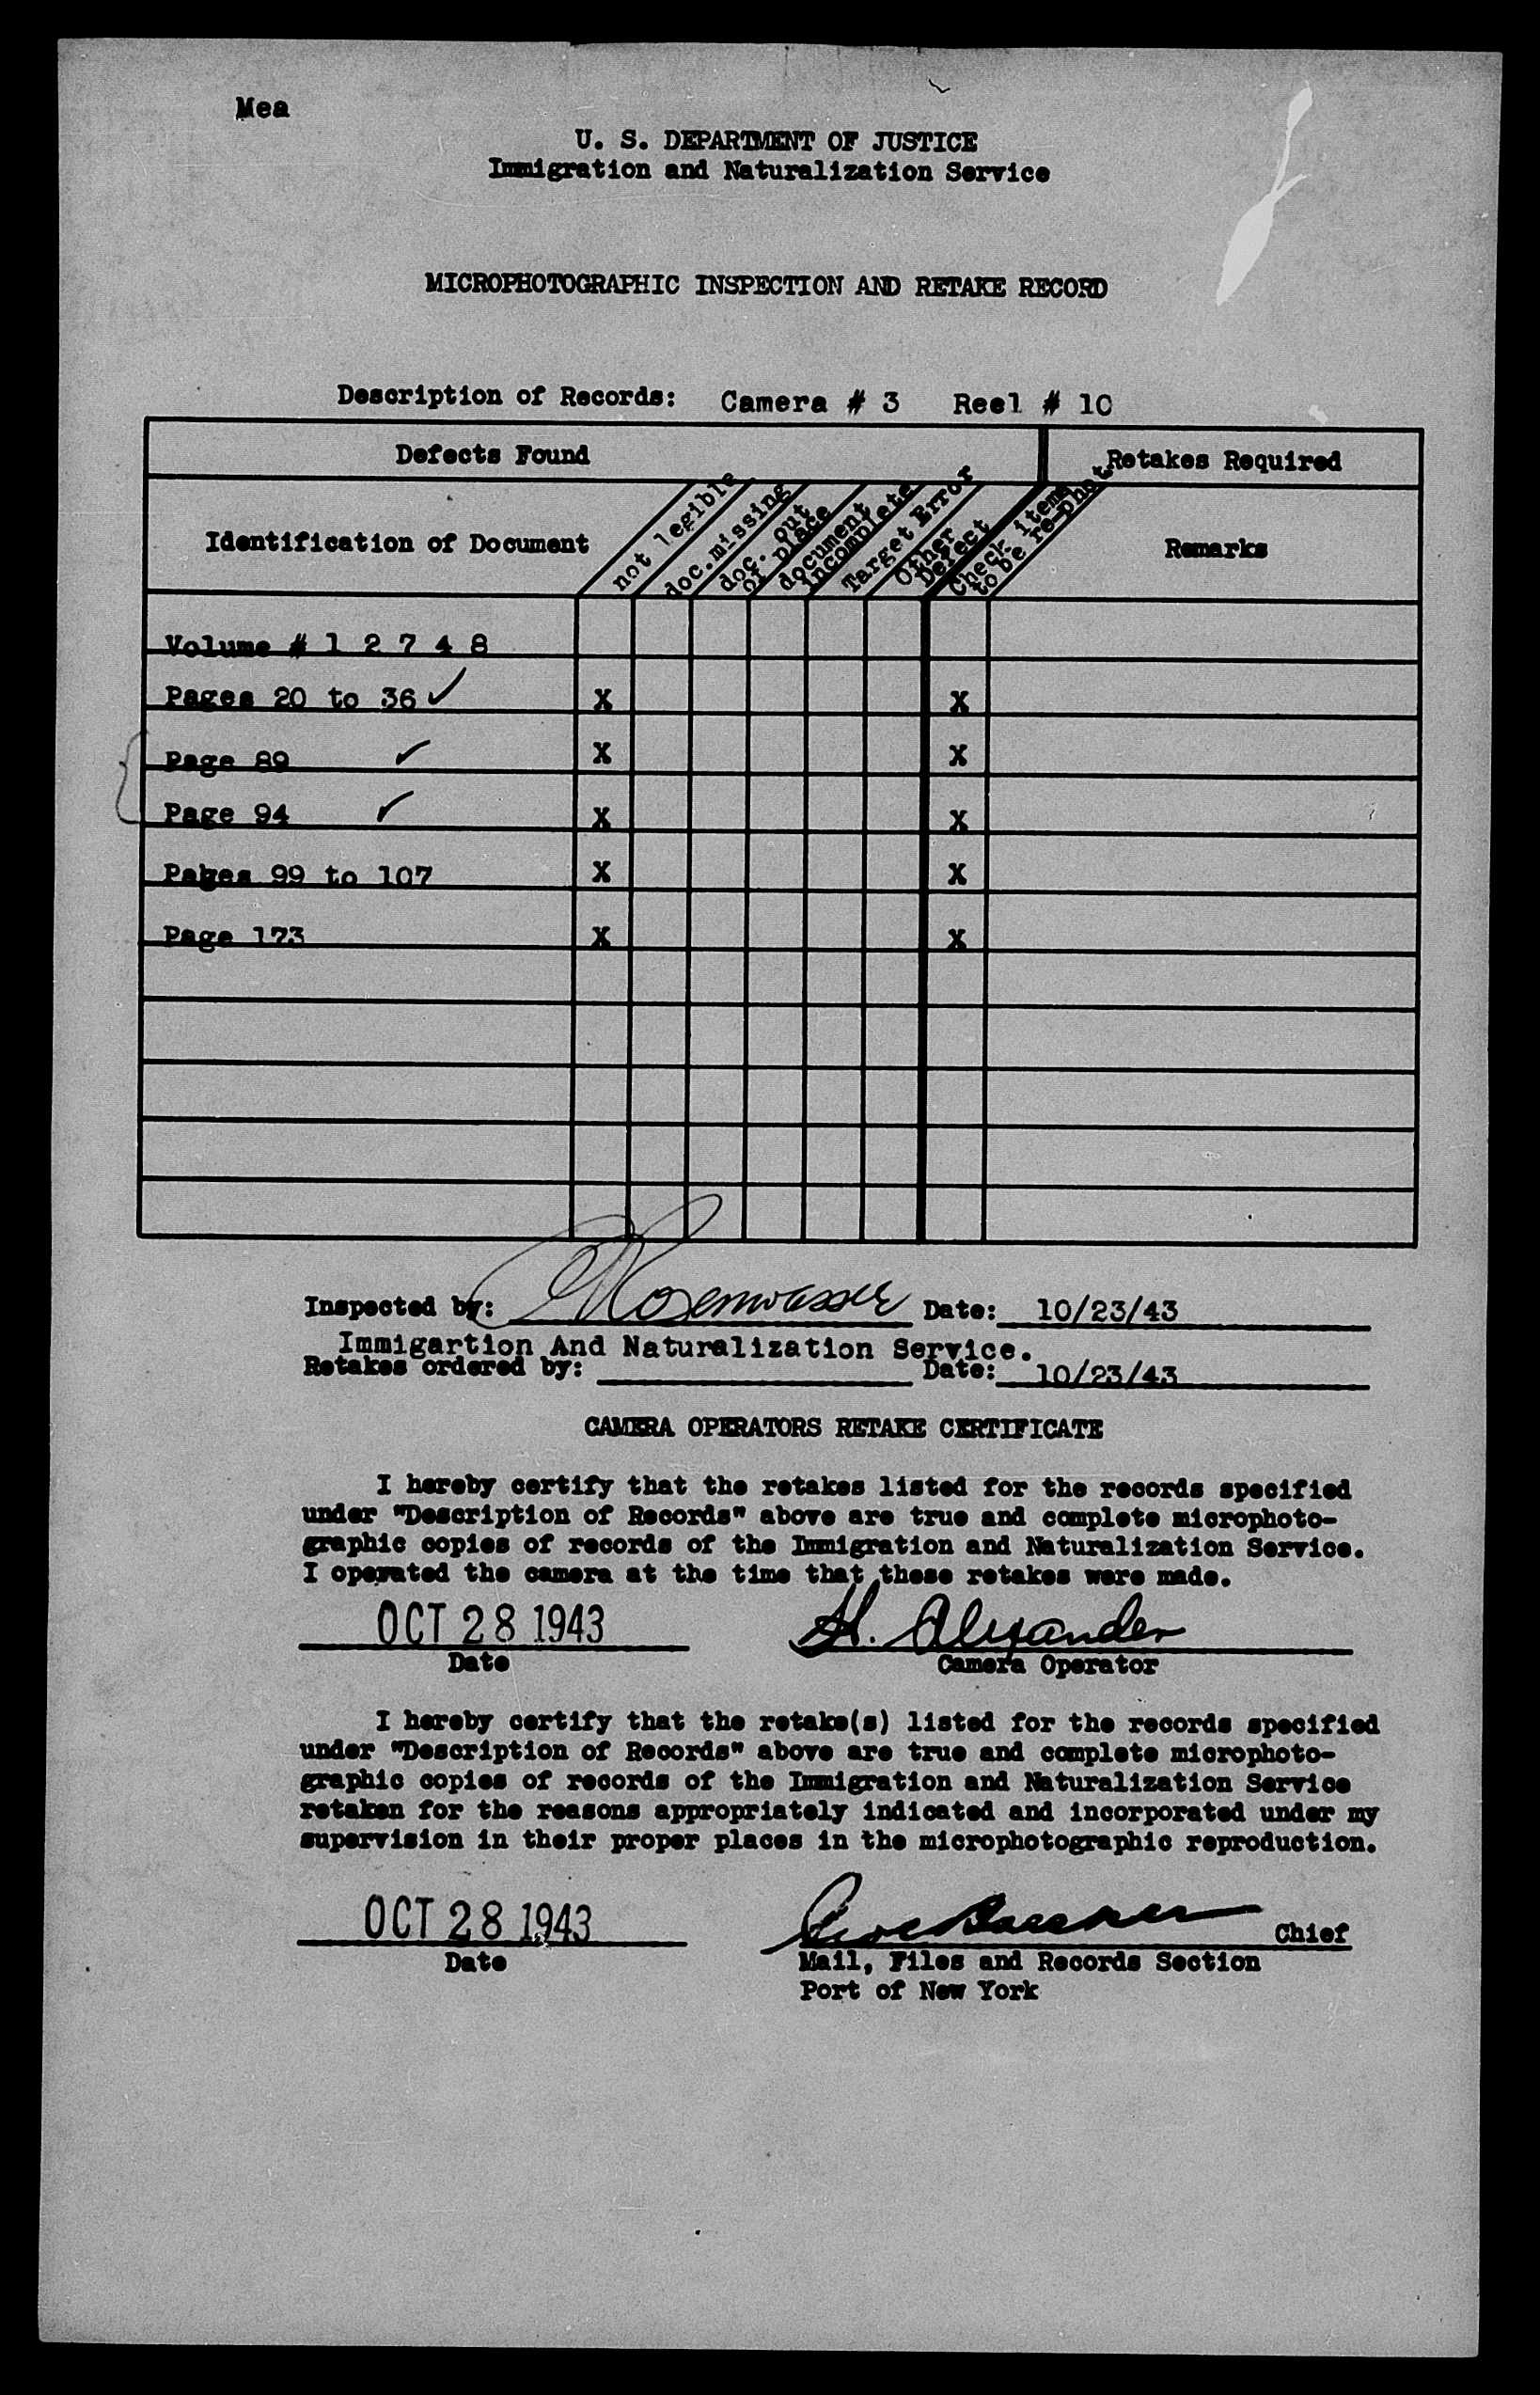 Mea
U. S. DEPARTMENT OF JUSTICE
Immigration and Naturalization Service
MICROPHOTOGRAPHIC INSPECTION AND RETAKE RECORD
Description of Records: Camera # 3 Reel # 10
Defects Found Retakes Required
Identification of Document
not legible
doc.missing
doc. out
of place
document
incomplete
Target Error
Other
Defect
Check items
to be re-phot
Remarks
Volume # 1 2 7 4 8
Pages 20 to 36 ✓ X X
Page 89 ✓ X X
Page 94 ✓ X X
Pages 99 to 107 X X
Page 173 X X
Inspected by: Rosenwasser Date: 10/23/43
Immigartion And Naturalization Service.
Retakes ordered by: Date: 10/23/43
CAMERA OPERATORS RETAKE CERTIFICATE
I hereby certify that the retakes listed for the records specified
under "Description of Records" above are true and complete microphoto-
graphic copies of records of the Immigration and Naturalization Service.
I operated the camera at the time that these retakes were made.
OCT 28 1943 H. Alexander
Date Camera Operator
I hereby certify that the retake(s) listed for the records specified
under "Description of Records" above are true and complete microphoto-
graphic copies of records of the Immigration and Naturalization Service
retaken for the reasons appropriately indicated and incorporated under my
supervision in their proper places in the microphotographic reproduction.
OCT 28 1943 Chief
Date Mail, Files and Records Section
Port of New York